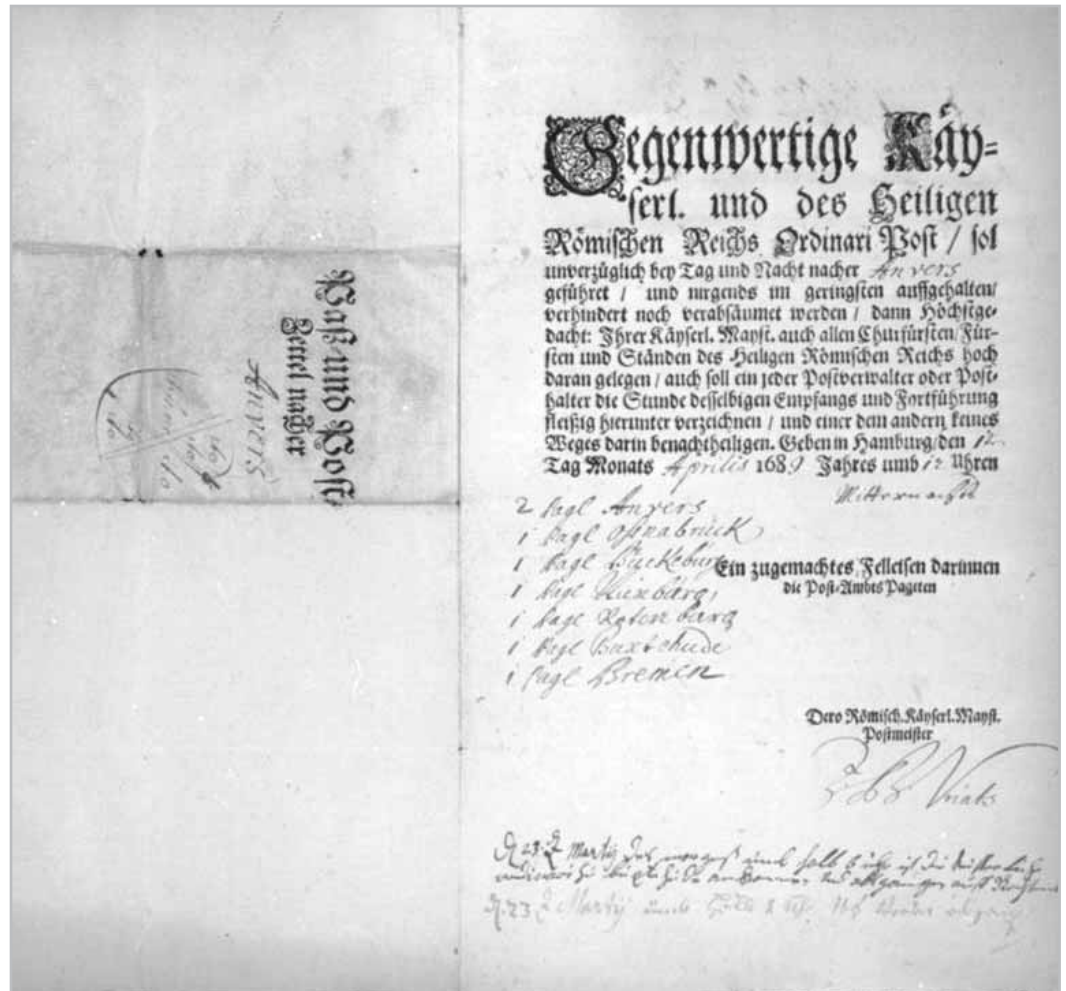 Paß und Post-
Zettel nacher
Anvers
Gegenwertige Käy-
serl. und des Heiligen
Römischen Reichs Ordinari Post / sol
unverzüglich bey Tag und Nacht nacher Anvers
geführet / und nirgends im geringsten auffgehalten/
verhindert noch verabsäumet werden / dann Höchstge-
dacht: Ihrer Käyserl. Mayst. auch allen Churfürsten/Für-
sten und Ständen des Heiligen Römischen Reichs hoch
daran gelegen / auch soll ein jeder Postverwalter oder Post-
halter die Stunde desselbigen Empfangs und Fortführung
fleißig hierunter verzeichnen / und einer dem andern keines
Weges darin benachtheiligen. Geben in Hamburg/den 12
Tag Monats Aprilis 1689 Jahres umb 12 Uhren
Mitternacht
2 Pagt Anvers
1 Pagt Ossnabruck
1 Pagt Buckeburg
1 Pagt Nienburg
1 Pagt Rotenburg
1 Pagt Buxtehude
1 Pagt Bremen
Ein zugemachtes Felleisen darinnen
die Post-Ambts Pageten
Dero Römisch. Käyserl. Mayst.
Postmeister
Vriats
23 Martij halb 6
23 Martij